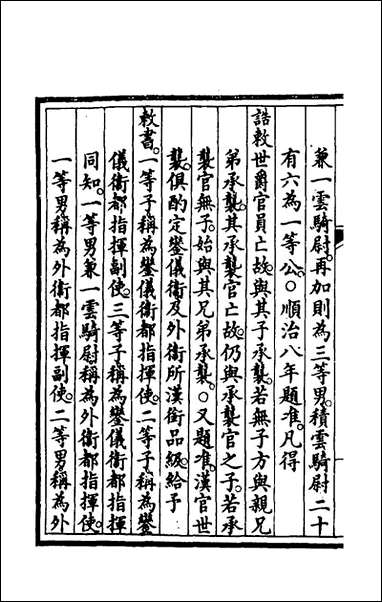 兼一雲騎尉。再加則為三等男。積雲騎尉二十
有六為一等公。○順治八年題准。凡得
誥敕世爵官員亡故。與其子承襲。若無子方與親兄
弟承襲。其承襲官亡故。仍與承襲官之子。若承
襲官無子。始與其兄弟承襲。○又題准。漢官世
襲。俱酌定鑾儀衛及外衛所漢銜品級。給予
敕書。一等子稱為鑾儀衛都指揮使。二等子稱為鑾
儀衛都指揮副使。三等子稱為鑾儀衛都指揮
同知。一等男兼一雲騎尉稱為外衛都指揮使。
一等男稱為外衛都指揮副使。二等男稱為外